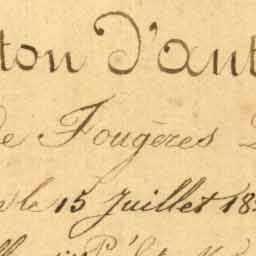 ton d'ant
de Fougères
le 15 Juillet 18